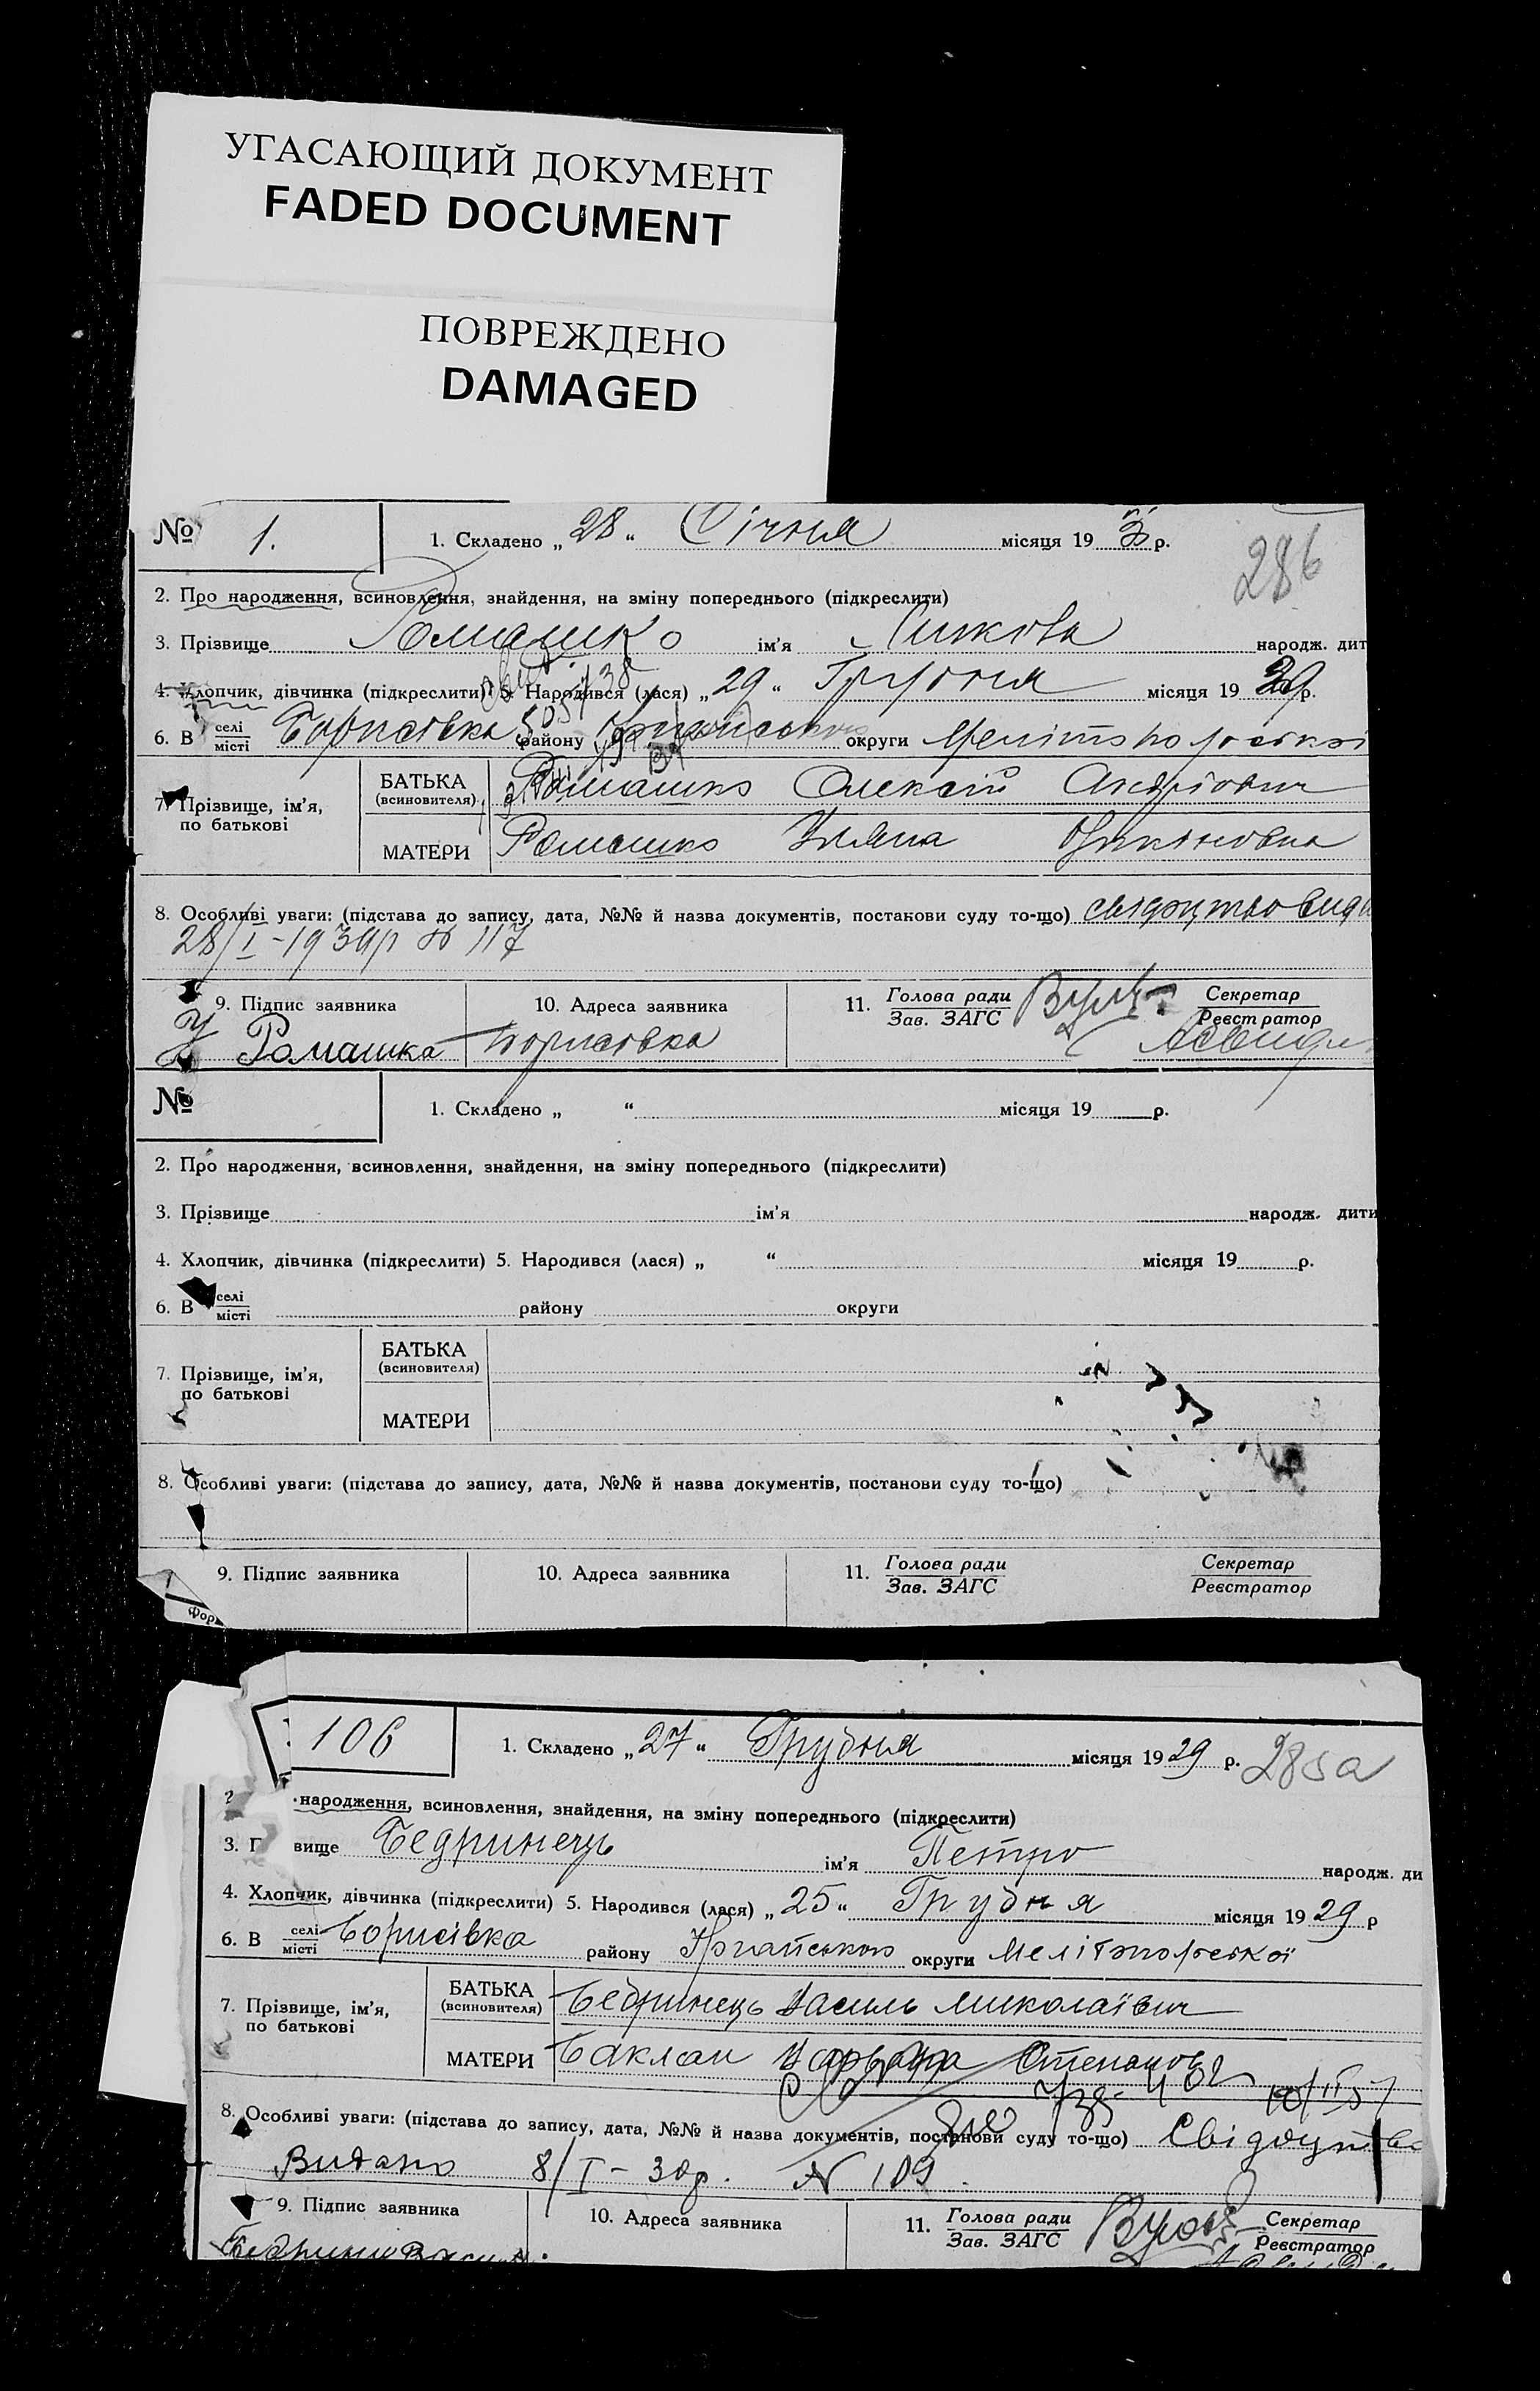 УГАСАЮЩИЙ ДОКУМЕНТ
FADED DOCUMENT
ПОВРЕЖДЕНО
DAMAGED
№ 1.
1. Складено „28“ Січня місяця 19 р.
286
2. Про народження, всиновлення, знайдення, на зміну попереднього (підкреслити)
3. Прізвище Ромашко ім'я народж. дит
4. Хлопчик, дівчинка (підкреслити) 5. Народився (лася) „29“ Грудня місяця 19 29 р.
6. В селі місті Борисівка району округи Мелітопольскої
7. Прізвище, ім'я, по батькові
БАТЬКА (всиновителя) Ромашко Олексій Андрійович
МАТЕРИ Ромашко Уляна
8. Особливі уваги: (підстава до запису, дата, №№ й назва документів, постанови суду то-що) свідоцтво вида
28/I-1930р № 117
9. Підпис заявника
10. Адреса заявника
11. Голова ради Зав. ЗАГС
Секретар Реєстратор
Ромашка
Борисовка
№
1. Складено „ “ місяця 19 р.
2. Про народження, всиновлення, знайдення, на зміну попереднього (підкреслити)
3. Прізвище ім'я народж. дити
4. Хлопчик, дівчинка (підкреслити) 5. Народився (лася) „ “ місяця 19 р.
6. В селі місті району округи
7. Прізвище, ім'я, по батькові
БАТЬКА (всиновителя)
МАТЕРИ
8. Особливі уваги: (підстава до запису, дата, №№ й назва документів, постанови суду то-що)
9. Підпис заявника
10. Адреса заявника
11. Голова ради Зав. ЗАГС
Секретар Реєстратор
Фор
106
1. Складено „27“ Грудня місяця 19 29 р.
285а
2. народження, всиновлення, знайдення, на зміну попереднього (підкреслити)
3. П вище Бедринець ім'я Петро народж. ди
4. Хлопчик, дівчинка (підкреслити) 5. Народився (лася) „25“ Грудня місяця 19 29 р
6. В селі місті Борисівка району округи Мелітопольскої
7. Прізвище, ім'я, по батькові
БАТЬКА (всиновителя) Бедринець Василь Миколаївич
МАТЕРИ Баклан Степанов
8. Особливі уваги: (підстава до запису, дата, №№ й назва документів, постанови суду то-що) Свідоцтво
Видано 8/I-30р. № 109
9. Підпис заявника
10. Адреса заявника
11. Голова ради Зав. ЗАГС
Секретар Реєстратор